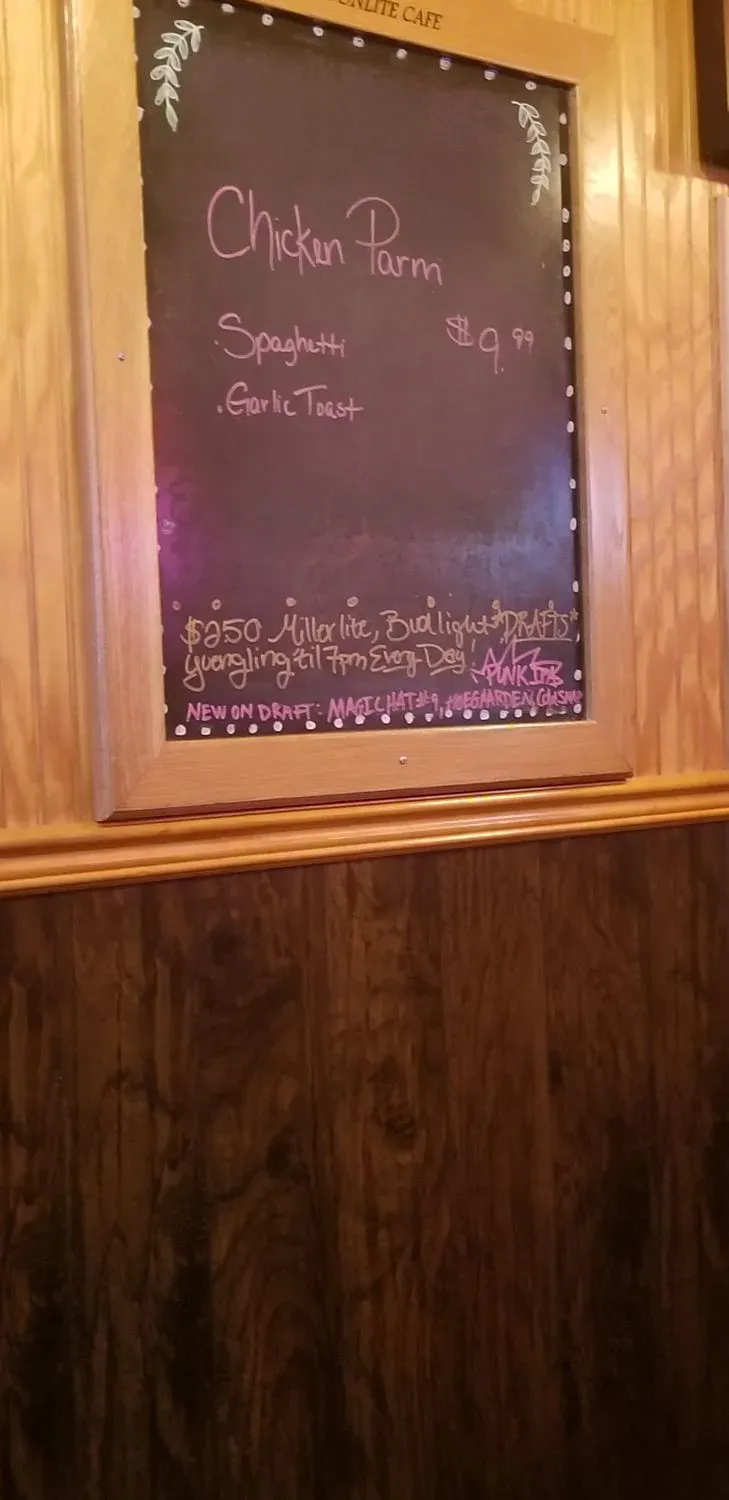 CAFE
Chicken Parm
. Spaghetti $9.99
. Garlic Toast
$2.50 Miller lite, Bud light *DRAFTS*
yuengling 'til 7pm Every Day!
PUNK
NEW ON DRAFT: MAGIC HAT #9, HOEGAARDEN,